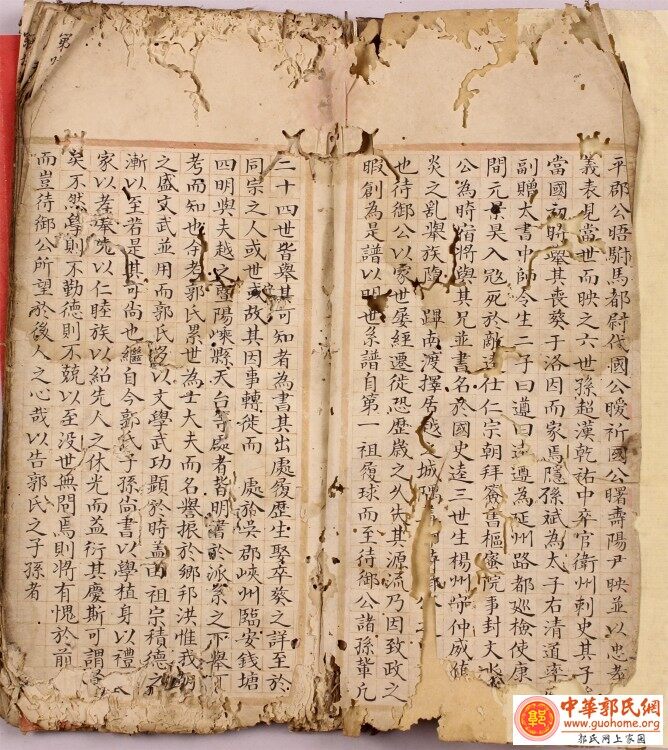 平郡公晤駙馬都尉代國公曖祈國公曙壽陽尹映並以忠孝
義表見當世而映之六世孫超漢乾祐中卒官衛州刺史其子
當國初時舉其喪葵于洛因而家焉隱孫斌為太子右清道率
副贈太書中師令生二子曰遵曰逵遵為延州路都廵檢使康
間元昊入冦死於敵逵仕仁宗朝拜簽書樞宻院事封文水
公為時宿將與其兄並書名於國史逵三世生楊州帥仲威值
炎之亂舉族隨 蹕南渡擇居越城隅
也待御公以蒙世屡經遷徙恐歷歲之久失其源流乃因致政之
暇創為是譜以明世系譜自第一祖履球而至待御公諸孫輩凡
二十四世皆舉其可知者為書其出處履歷生娶卒葵之詳至於
同宗之人或世或故其因事轉徙而 處於吳郡峽州臨安錢塘
四明與夫越之暨陽嵊縣天台等處者皆明著於派系之下舉可
考而知也余考郭氏累世為士大夫而名譽振於鄉邦洪惟我朝
之盛文武並用而郭氏多以文學武功顯於時盖由祖宗積德之
漸以至若是其可尚也繼自今郭氏子孫尚書以學植身以禮
家以孝奉先以仁睦族以紹先人之休光而益衍其慶斯可謂
矣不然學則不勤德則不兢以至没世無聞焉則將有愧於前
而豈待御公所望於後人之心哉以告郭氏之子孫者
第
中華郭氏網
www.guohome.org
郭氏网上家園